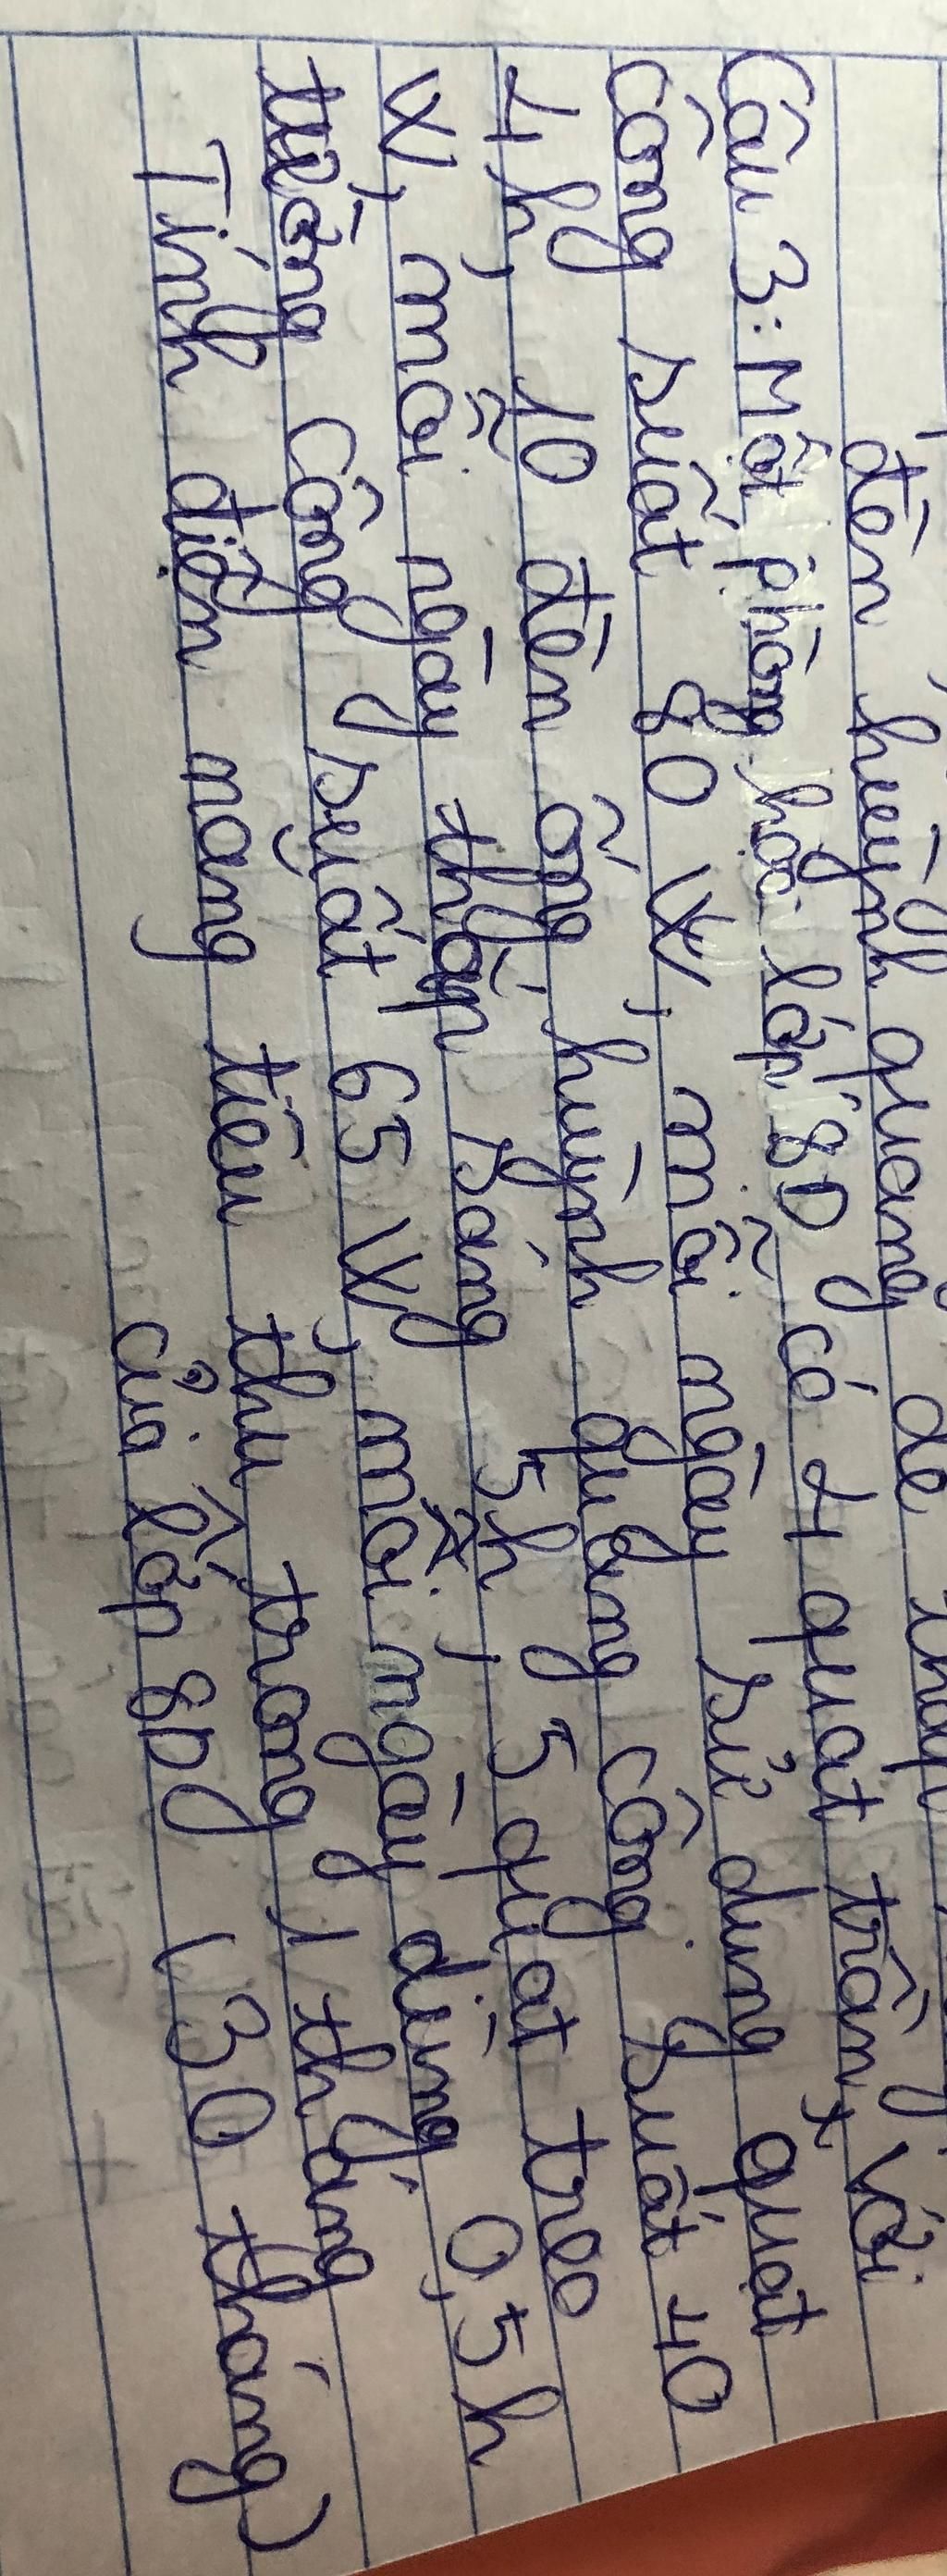 đèn huỳnh quang để thấp
Câu 3: Một phòng học lớp 8D có 4 quạt trần, với
công suất 80 W, mỗi ngày sử dụng quạt
4h, 10 đèn ống huỳnh quang công suất 40
W, mỗi ngày thắp sáng 5h, 5 quạt treo
tường công suất 65 W, mỗi ngày dùng 0,5h
Tính điện năng tiêu thụ trong 1 tháng
của lớp 8D (30 tháng)